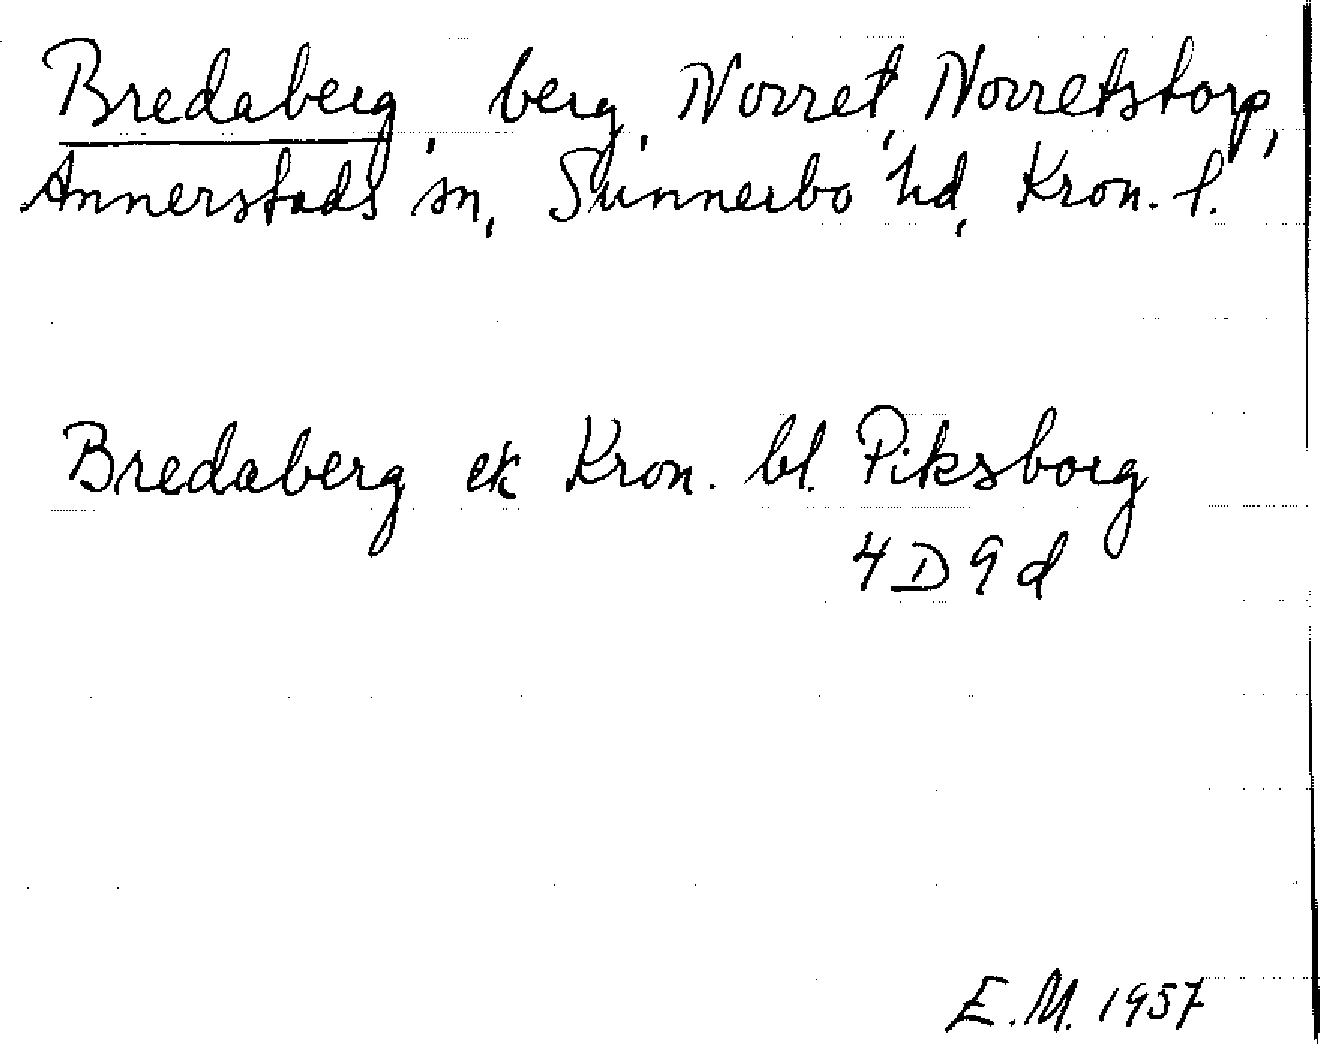 Bredaberg, berg, Norret, Norretstorp,
Annerstads sn, Sunnerbo hd, Kron. l.
Bredaberg ek Kron. bl. Piksborg
4 D 9 d
E.M. 1957